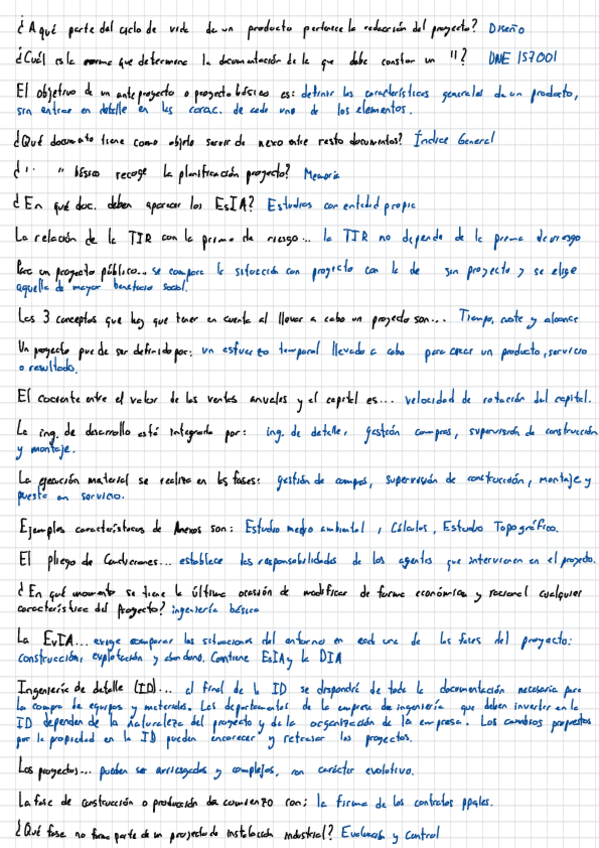 ¿A qué parte del ciclo de vida de un producto pertenece la redacción del proyecto? Diseño
¿Cuál es la norma que determina la documentación de la que debe constar un "? UNE 157001
El objetivo de un anteproyecto o proyecto básico es: definir las características generales de un producto,
sin entrar en detalle en las carac. de cada uno de los elementos.
¿Qué documento tiene como objeto servir de nexo entre resto documentos? Índice General
¿" " básico recoge la planificación proyecto? Memoria
¿En qué doc. deben aparecer los EsIA? Estudios con entidad propia
La relación de la TIR con la prima de riesgo... la TIR no depende de la prima de riesgo
Para un proyecto público... se compara la situación con proyecto con la de sin proyecto y se elige
aquella de mayor beneficio social.
Los 3 conceptos que hay que tener en cuenta al llevar a cabo un proyecto son... Tiempo, coste y alcance
Un proyecto puede ser definido por: un esfuerzo temporal llevado a cabo para crear un producto, servicio
o resultado.
El cociente entre el valor de las ventas anuales y el capital es... velocidad de rotación del capital.
La ing. de desarrollo está integrada por: ing. de detalle, gestión compras, supervisión de construcción
y montaje.
La ejecución material se realiza en las fases: gestión de compras, supervisión de construcción, montaje y
puesta en servicio.
Ejemplos característicos de Anexos son: Estudio medio ambiental, Cálculos, Estudio Topográfico.
El Pliego de Condiciones... establece las responsabilidades de los agentes que intervienen en el proyecto.
¿En qué momento se tiene la última ocasión de modificar de forma económica y racional cualquier
característica del Proyecto? ingeniería básica
La EvIA... exige comparar las situaciones del entorno en cada una de las fases del proyecto:
construcción, explotación y abandono. Contiene EsIA y la DIA
Ingeniería de detalle (ID)... al final de la ID se dispondrá de toda la documentación necesaria para
la compra de equipos y materiales. Los departamentos de la empresa de ingeniería que deben invertir en la
ID dependen de la naturaleza del proyecto y de la organización de la empresa. Los cambios propuestos
por la propiedad en la ID pueden encarecer y retrasar los proyectos.
Los proyectos... pueden ser arriesgados y complejos, con carácter evolutivo.
La fase de construcción o producción da comienzo con: la firma de los contratos ppales.
¿Qué fase no forma parte de un proyecto de instalación industrial? Evaluación y Control